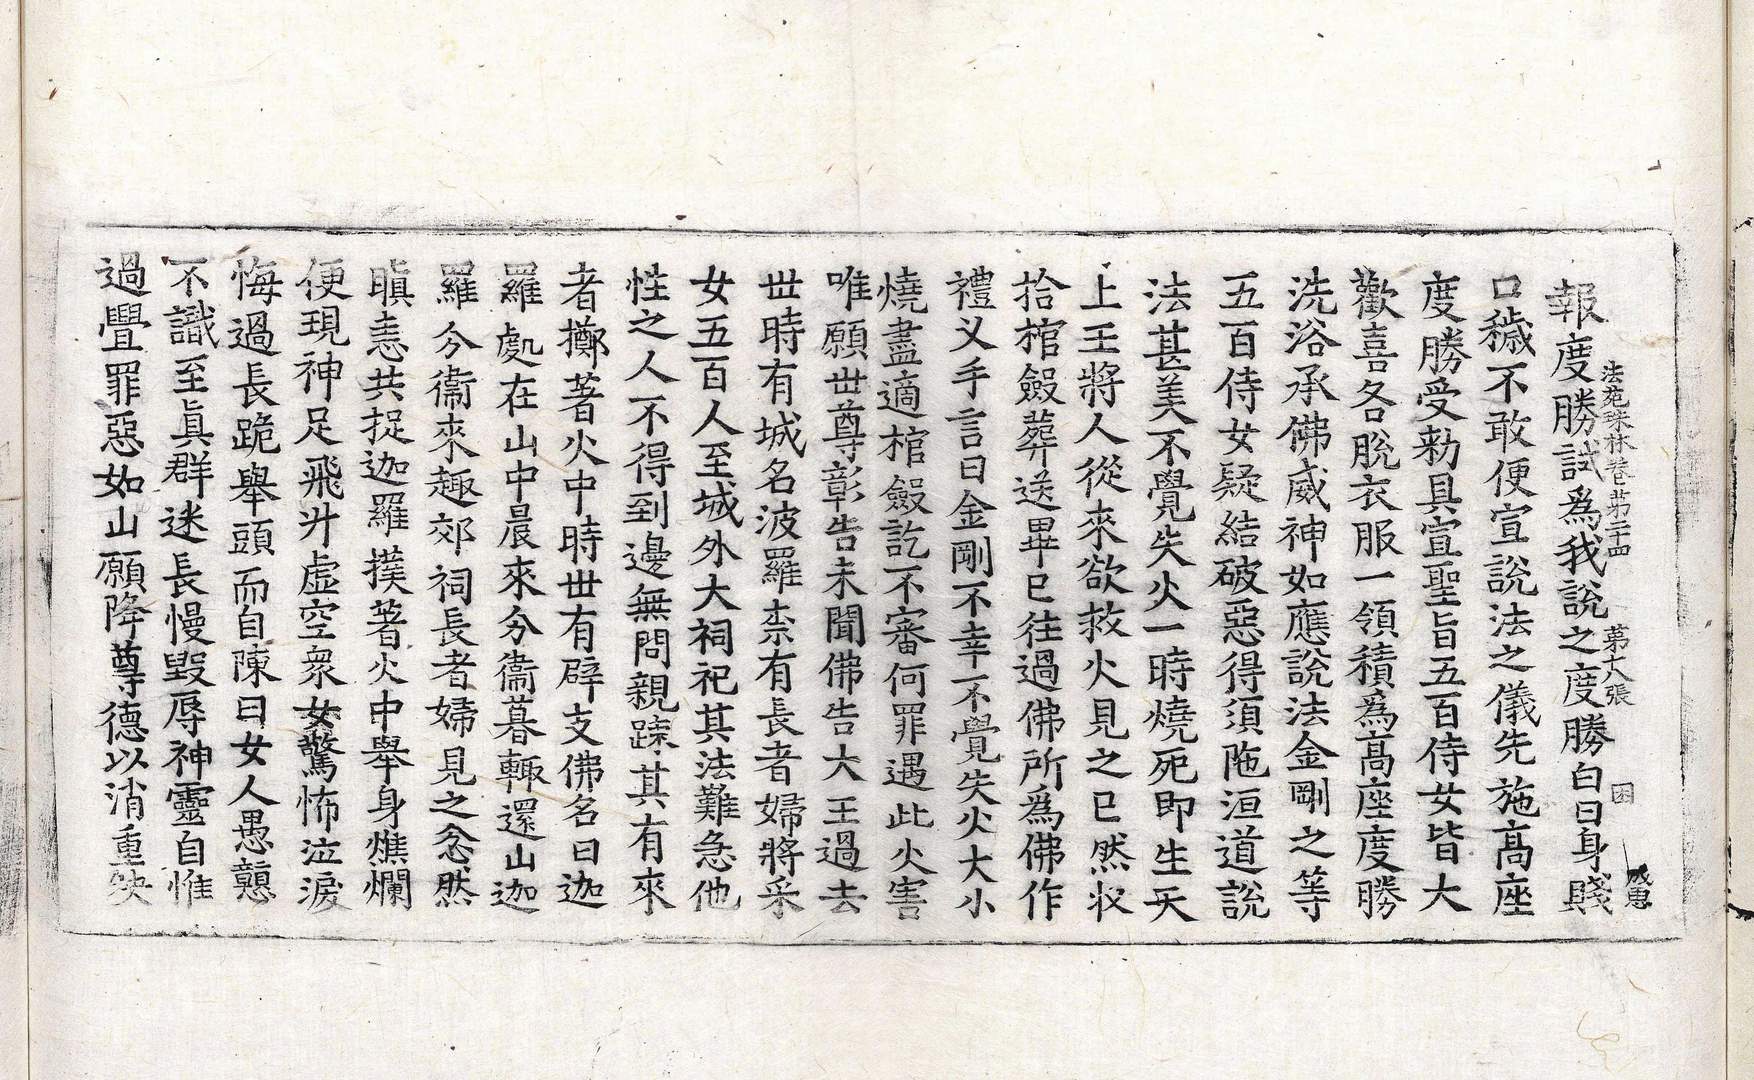 法苑珠林卷苐二十四　第十八張　困
報度勝試爲我說之度勝白曰身賤
口穢不敢便宣說法之儀先施髙座
度勝受勑具宣聖旨五百侍女皆大
歡喜各脫衣服一領積爲髙座度勝
洗浴承佛威神如應說法金剛之等
五百侍女疑結破惡得湏陁洹道說
法甚美不覺失火一時燒死即生天
上王將人從來欲救火見之已然收
拾棺殮葬送畢已往過佛所爲佛作
禮叉手言曰金剛不幸不覺失火大小
燒盡適棺殮訖不審何罪遇此火害
唯願世尊彰告未聞佛告大王過去
世時有城名波羅柰有長者婦將采
女五百人至城外大祠祀其法難急他
性之人不得到邊無問親踈其有來
者擲著火中時世有辟支佛名曰迦
羅處在山中晨來分衞暮輒還山迦
羅分衞來趣郊祠長者婦見之忿然
瞋恚共捉迦羅撲著火中舉身燋爛
便現神足飛昇虛空衆女驚怖泣淚
悔過長跪舉頭而自陳曰女人愚戇
不識至眞群迷長慢毀辱神靈自惟
過舋罪惡如山願降尊德以消重殃